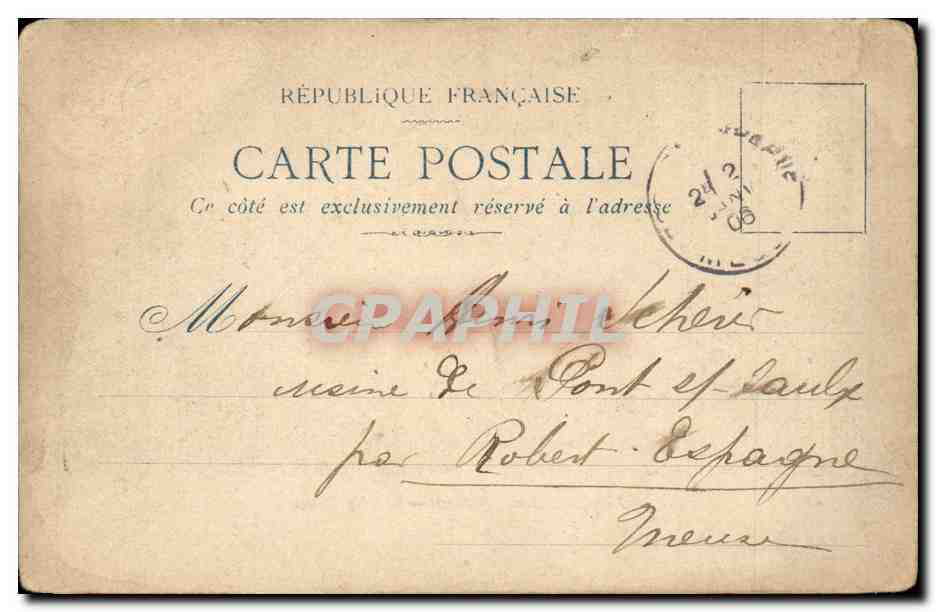 RÉPUBLIQUE FRANÇAISE
CARTE POSTALE
Ce côté est exclusivement réservé à l'adresse
24
06
CPAPHIL
Monsieur Remi Scherer
usine de Pont s/- Saulx
par Robert-Espagne
Meuse